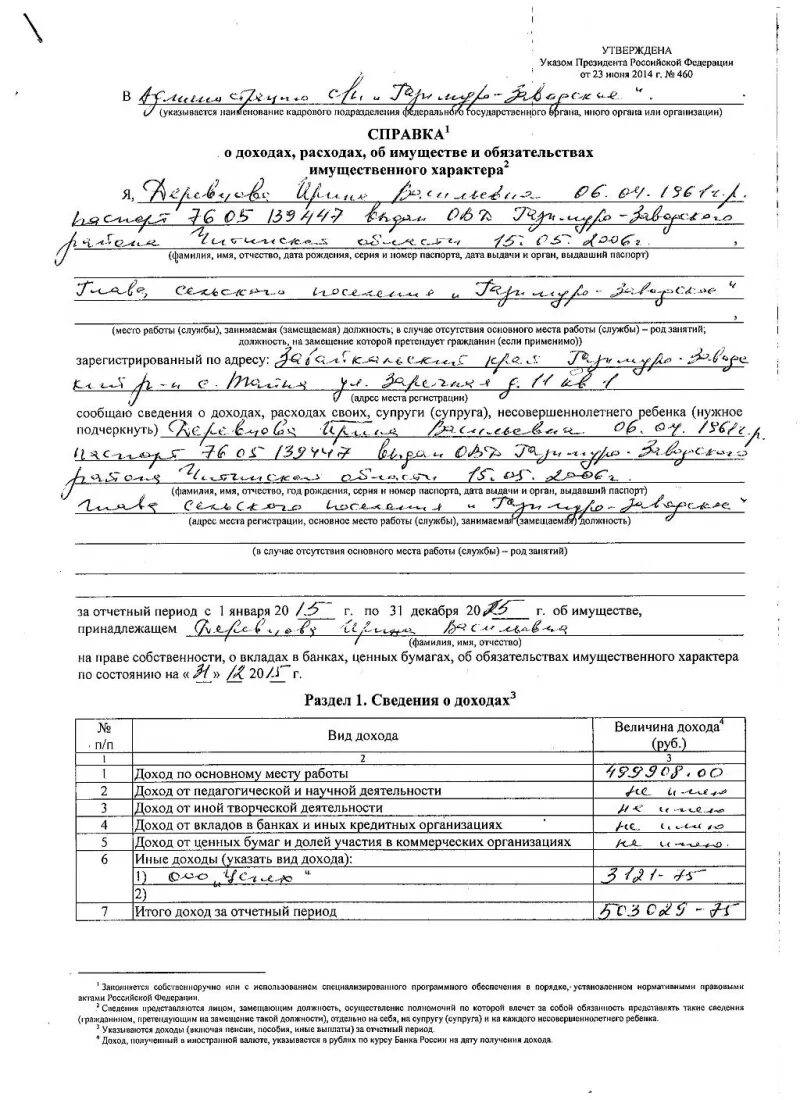 УТВЕРЖДЕНА
Указом Президента Российской Федерации
от 23 июня 2014 г. № 460
В Администрацию с/п „Газимуро-Заводское“.
(указывается наименование кадрового подразделения федерального государственного органа, иного органа или организации)
СПРАВКА¹
о доходах, расходах, об имуществе и обязательствах
имущественного характера²
Я, Деревцова Ирина Васильевна 06.04.1961г.р.
паспорт 7605 139447 выдан ОВД Газимуро-Заводского
района Читинской области 15.05.2006г. ,
(фамилия, имя, отчество, дата рождения, серия и номер паспорта, дата выдачи и орган, выдавший паспорт)
Глава, сельского поселения „Газимуро-Заводское“
,
(место работы (службы), занимаемая (замещаемая) должность; в случае отсутствия основного места работы (службы) – род занятий;
должность, на замещение которой претендует гражданин (если применимо))
зарегистрированный по адресу: Забайкальский край Газимуро-Заводс
кий р-н с. ул. Заречная д. 11 кв 1
(адрес места регистрации)
сообщаю сведения о доходах, расходах своих, супруги (супруга), несовершеннолетнего ребенка (нужное
подчеркнуть) Деревцова Ирина Васильевна 06.04.1961г.р.
паспорт 7605 139447 выдан ОВД Газимуро-Заводского
района Читинской области 15.05.2006г.
(фамилия, имя, отчество, год рождения, серия и номер паспорта, дата выдачи и орган, выдавший паспорт)
Глава сельского поселения „Газимуро-Заводское“
(адрес места регистрации, основное место работы (службы), занимаемая (замещаемая) должность)
(в случае отсутствия основного места работы (службы) – род занятий)
за отчетный период с 1 января 2015 г. по 31 декабря 2015 г. об имуществе,
принадлежащем Деревцова Ирина Васильевна
(фамилия, имя, отчество)
на праве собственности, о вкладах в банках, ценных бумагах, об обязательствах имущественного характера
по состоянию на «31» 12 2015 г.
Раздел 1. Сведения о доходах³
№ п/п Вид дохода Величина дохода⁴ (руб.)
1 2 3
1 Доход по основному месту работы 499908.00
2 Доход от педагогической и научной деятельности не имею
3 Доход от иной творческой деятельности не имею
4 Доход от вкладов в банках и иных кредитных организациях не имею
5 Доход от ценных бумаг и долей участия в коммерческих организациях не имею.
6 Иные доходы (указать вид дохода):
1) ООО „Успех“ 3121-75
2)
7 Итого доход за отчетный период 503029-75
¹ Заполняется собственноручно или с использованием специализированного программного обеспечения в порядке, установленном нормативными правовыми
актами Российской Федерации.
² Сведения представляются лицом, замещающим должность, осуществление полномочий по которой влечет за собой обязанность представлять такие сведения
(гражданином, претендующим на замещение такой должности), отдельно на себя, на супругу (супруга) и на каждого несовершеннолетнего ребенка.
³ Указываются доходы (включая пенсии, пособия, иные выплаты) за отчетный период.
⁴ Доход, полученный в иностранной валюте, указывается в рублях по курсу Банка России на дату получения дохода.